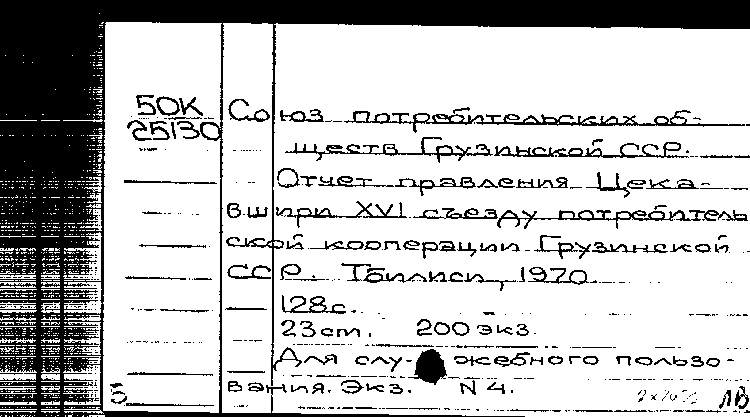 50К
25130
Союз потребительских об-
ществ Грузинской ССР.
Отчет правления Цека-
вшири XVI съезду потребитель
ской кооперации Грузинской
ССР. Тбилиси, 1970
128с.
23cm. 200 экз.
Для служебного пользо-
вания. Экз. N 4.
5
ЛВ